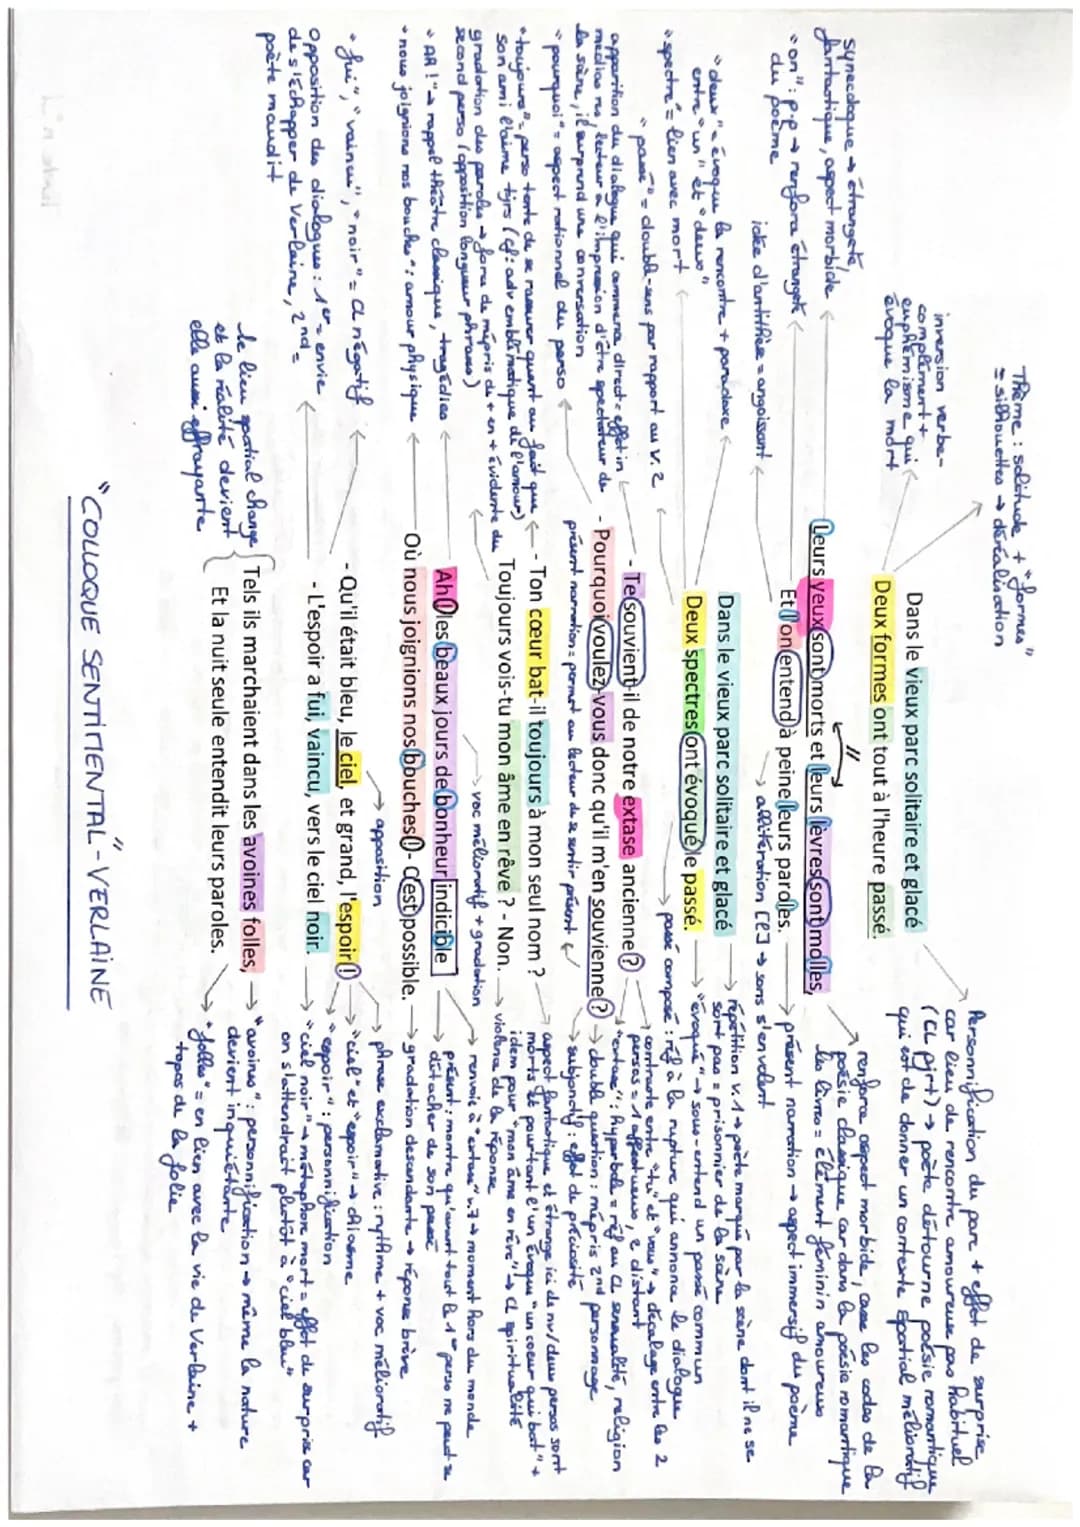 Thème : solitude + "formes"
= silhouettes → déréalisation
inversion verbe-
complément +
euphémisme qui
évoque la mort
Dans le vieux parc solitaire et glacé
Deux formes ont tout à l'heure passé.
Personnification du parc + effet de surprise
car lieu de rencontre amoureux pas habituel
(CL pjrt) → poète détourne poésie romantique
qui est de donner un contexte spatial mélioratif
synecdoque → étrangeté,
fantastique, aspect morbide
Leurs yeux sont morts et leurs lèvres sont molles,
renforce aspect morbide, casse les codes de la
poésie classique car dans la poésie romantique
les lèvres = élément féminin amoureux
"on" : p.p → renforce étrangeté
du poème
Et l'on entend à peine leurs paroles.
présent narration → aspect immersif du poème
→ allitération [l] → sons s'envolent
idée d'antithèse = angoissant
Dans le vieux parc solitaire et glacé
→ répétition v.1 → poète marqué par la scène dont il ne se
sort pas = prisonnier de la scène
"deux" = évoque la rencontre + paradoxe
entre "un" et "deux"
Deux spectres ont évoqué le passé.
→ "évoqué" → sous-entend un passé commun
"spectre" = lien avec mort
→ passé composé : réf à la rupture qui annonce le dialogue
"passé" = double-sens par rapport au v. 2
apparition du dialogue qui commence direct = effet in
medias res, lecteur a l'impression d'être spectateur de
la scène, il surprend une conversation
- Te souvient-il de notre extase ancienne ?
→ contraste entre "tu" et "vous" → décalage entre les 2
persos = 1 affectueux, 2 distant
"extase" : hyperbole = réf au CL sensualité, religion
- Pourquoi voulez-vous donc qu'il m'en souvienne ?
→ double question : mépris 2nd personnage
→ subjonctif : effet de préciosité
présent narration = permet au lecteur de se sentir présent
"pourquoi" = aspect rationnel du perso
"toujours" = perso tente de se rassurer quant au fait que
son ami l'aime tjrs (cf : adv emblématique de l'amour)
- Ton cœur bat-il toujours à mon seul nom ?
aspect fantastique et étrange ici de nv / deux persos sont
morts et pourtant l'un évoque "un cœur qui bat" +
idem pour "mon âme en rêve" → CL spiritualité
gradation des paroles → force de mépris de + en + évidente du
second perso (opposition longueur phrases)
Toujours vois-tu mon âme en rêve ? - Non.
→ violence de la réponse
→ voc mélioratif + gradation
"Ah !" → rappel théâtre classique, tragédies
Ah ! les beaux jours de bonheur indicible
→ renvoie à "extase" v.7 → moment hors du monde
présent : montre qu'avant tout le 1er perso ne peut se
détacher de son passé
"nous joignions nos bouches" : amour physique
Où nous joignions nos bouches ! - C'est possible.
→ gradation descendante → réponse brève
→ apposition
→ phrase exclamative : rythme + voc mélioratif
"fui", "vaincu", "noir" = CL négatif
- Qu'il était bleu, le ciel, et grand, l'espoir !
→ "ciel" et "espoir" → chiasme
→ "espoir" : personnification
opposition des dialogues : 1er = envie
de s'échapper de Verlaine, 2nd =
poète maudit
- L'espoir a fui, vaincu, vers le ciel noir.
→ "ciel noir" → métaphore mort = effet de surprise car
on s'attendrait plutôt à "ciel bleu"
le lieu spatial change
et la réalité devient
elle aussi effrayante
Tels ils marchaient dans les avoines folles,
Et la nuit seule entendit leurs paroles.
→ "avoines" : personnification → même la nature
devient inquiétante
→ "folles" = en lien avec la vie de Verlaine +
topos de la folie
"COLLOQUE SENTIMENTAL" - VERLAINE